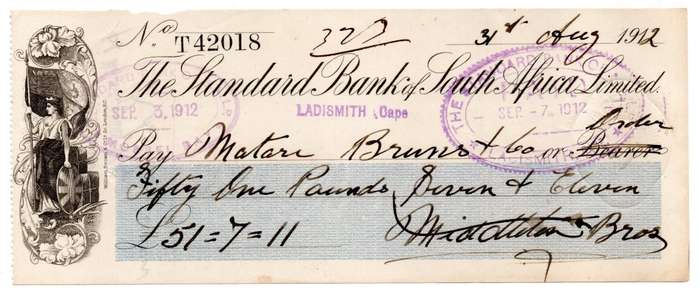 No T 42018 327 31st Aug 1912
The Standard Bank of South Africa Limited.
SEP. 3.1912 LADISMITH (Cape SEP -7.1912
THE STANDARD
Order
Pay Mataré Bruns & Co or Bearer
Fifty One Pounds, Seven & Eleven
£51=7=11 Middleton Bros